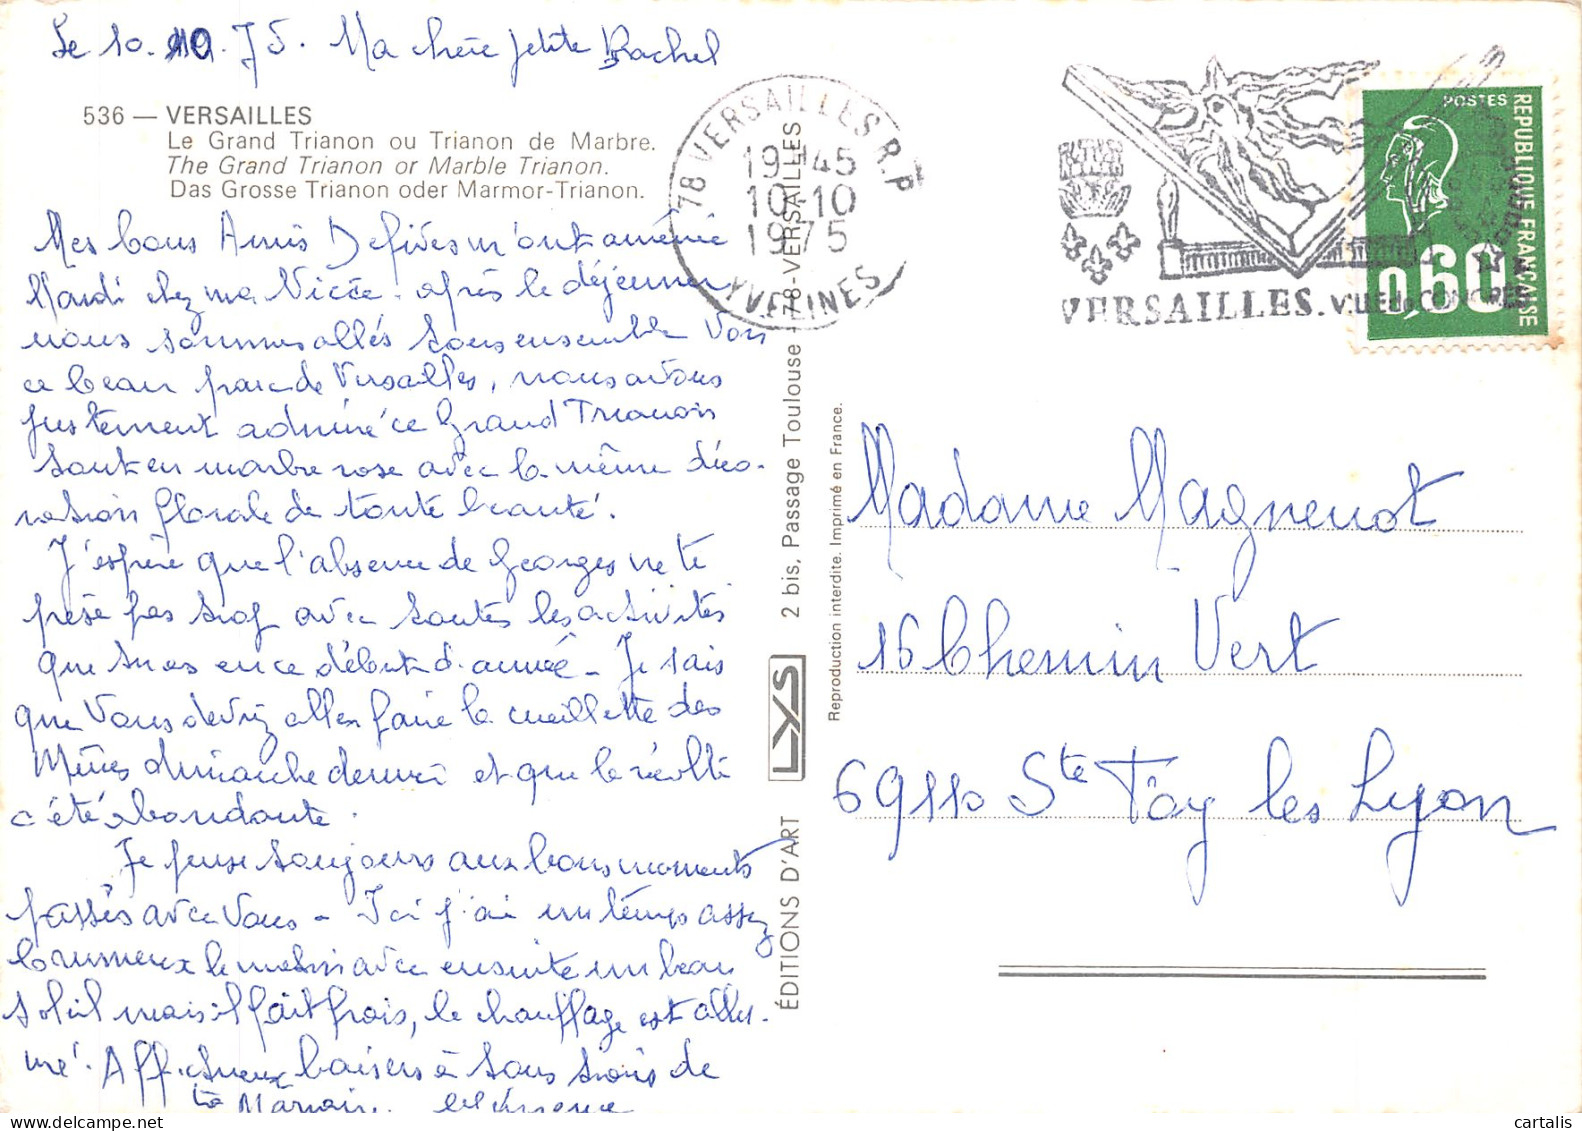 Le 10. 10. 75. Ma chère petite Rachel
536 — VERSAILLES
Le Grand Trianon ou Trianon de Marbre.
The Grand Trianon or Marble Trianon.
Das Grosse Trianon oder Marmor-Trianon.
Mes bons Amis Defives m'ont amenée
Mardi chez ma Nièce. après le déjeuner
nous sommes allés tous ensemble Voir
ce beau parc de Versailles, nous avons
justement admiré ce Grand Trianon
tout en marbre rose avec la même déco-
ration florale de toute beauté.
J'espère que l'absence de Georges ne te
pèse pas trop avec toutes les activités
que tu as en ce début d'année - Je sais
que Vous deviez aller faire la cueillette des
Mûres dimanche dernier et que la récolte
a été abondante.
Je pense toujours aux bons moments
passés avec Vous - Ici j'ai un temps assez
brumeux le matin avec ensuite un beau
soleil mais il fait frais, le chauffage est allu-
mé. Affectueux baisers à tous trois de
ta Marraine
78 VERSAILLES R.P
19 H45
10-10
1975
YVELINES
VERSAILLES. VILLE de CONGRES
POSTES
REPUBLIQUE FRANÇAISE
0,60
ÉDITIONS D'ART LYS 2 bis, Passage Toulouse - 78-VERSAILLES
Reproduction interdite. Imprimé en France.
Madame Magnenot
16 Chemin Vert
69110 Ste Foy les Lyon
cartalis